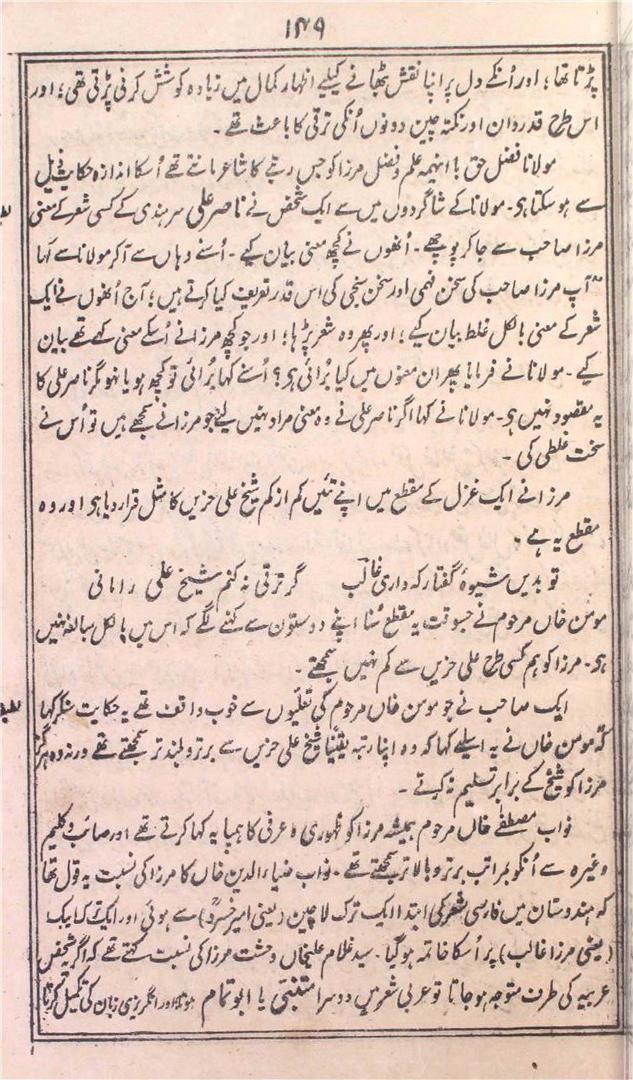 ۱۴۹
پڑتا تھا؛ اور اُنکے دل پر اپنا نقش بٹھانے کیلیے اظہار کمال میں زیادہ کوشش کرنی پڑتی تھی؛ اور
اس طرح قدردان اور نکتہ چین دونوں اُنکی ترقی کا باعث تھے۔
مولانا فضل حق با اینہمہ علم و فضل مرزا کو جس رتبے کا شاعر مانتے تھے اُسکا اندازہ حکایت ذیل
سے ہو سکتا ہی۔ مولانا کے شاگردوں میں سے ایک شخص نے ناصر علی سرہندی کے کسی شعر کے معنی
مرزا صاحب سے جا کر پوچھے۔ اُنھوں نے کچھ معنی بیان کیے۔ اُسنے وہاں سے آکر مولانا سے کہا
"آپ مرزا صاحب کی سخن فہمی اور سخن سنجی کی اس قدر تعریف کیا کرتے ہیں؛ آج اُنھوں نے ایک
شعر کے معنی بالکل غلط بیان کیے؛ اور پھر وہ شعر پڑھا؛ اور جو کچھ مرزا نے اُسکے معنی کہے تھے بیان
کیے۔ مولانا نے فرمایا پھر ان معنوں میں کیا بُرائی ہی؟ اُسنے کہا بُرائی تو کچھ ہو یا نہو مگر ناصر علی کا
یہ مقصود نہیں ہی۔ مولانا نے کہا اگر ناصر علی نے وہ معنی مراد نہیں لیے جو مرزا نے سمجھے ہیں تو اُس نے
سخت غلطی کی۔
مرزا نے ایک غزل کے مقطع میں اپنے تئیں کم از کم شیخ علی حزیں کا مثل قرار دیا ہی اور وہ
مقطع یہ ہے۔
تو بدیں شیوۂ گفتار کہ داری غالب گر ترقی نہ کنم شیخ علی را مانی
مومن خاں مرحوم نے جسوقت یہ مقطع سُنا اپنے دوستون سے کہنے لگے کہ اس میں بالکل مبالغہ نہیں
ہی۔ مرزا کو ہم کسی طرح علی حزیں سے کم نہیں سمجھتے۔
ایک صاحب نے جو مومن خاں مرحوم کی تعلّیوں سے خوب واقف تھے یہ حکایت سنکر کہا
کہ مومن خاں نے یہ اسلیے کہا کہ وہ اپنا رتبہ یقیناً شیخ علی حزیں سے برتر و بلند تر سمجھتے تھے ورنہ وہ ہرگز
مرزا کو شیخ کے برابر تسلیم نہ کرتے۔
نواب مصطفےٰ خاں مرحوم ہمیشہ مرزا کو ظہوری و عرفی کا ہمپایہ کہا کرتے تھے اور صائب و کلیم
وغیرہ سے اُنکو بمراتب برتر و بالا تر سمجھتے تھے۔ نواب ضیاء الدین خاں کا مرزا کی نسبت یہ قول تھا
کہ ہندوستان میں فارسی شعر کی ابتدا ایک ترک لاچین (یعنی امیر خسرو) سے ہوئی اور ایک ترک ایبک
(یعنی مرزا غالب) پر اُسکا خاتمہ ہو گیا۔ سید غلام علیخاں وحشت مرزا کی نسبت کہتے تھے کہ اگر یہ شخص
عربیہ کی طرف متوجہ ہو جاتا تو عربی شعر میں دوسرا متنبی یا ابو تمام ہوتا اور انگریزی زبان کی تکمیل کرتا